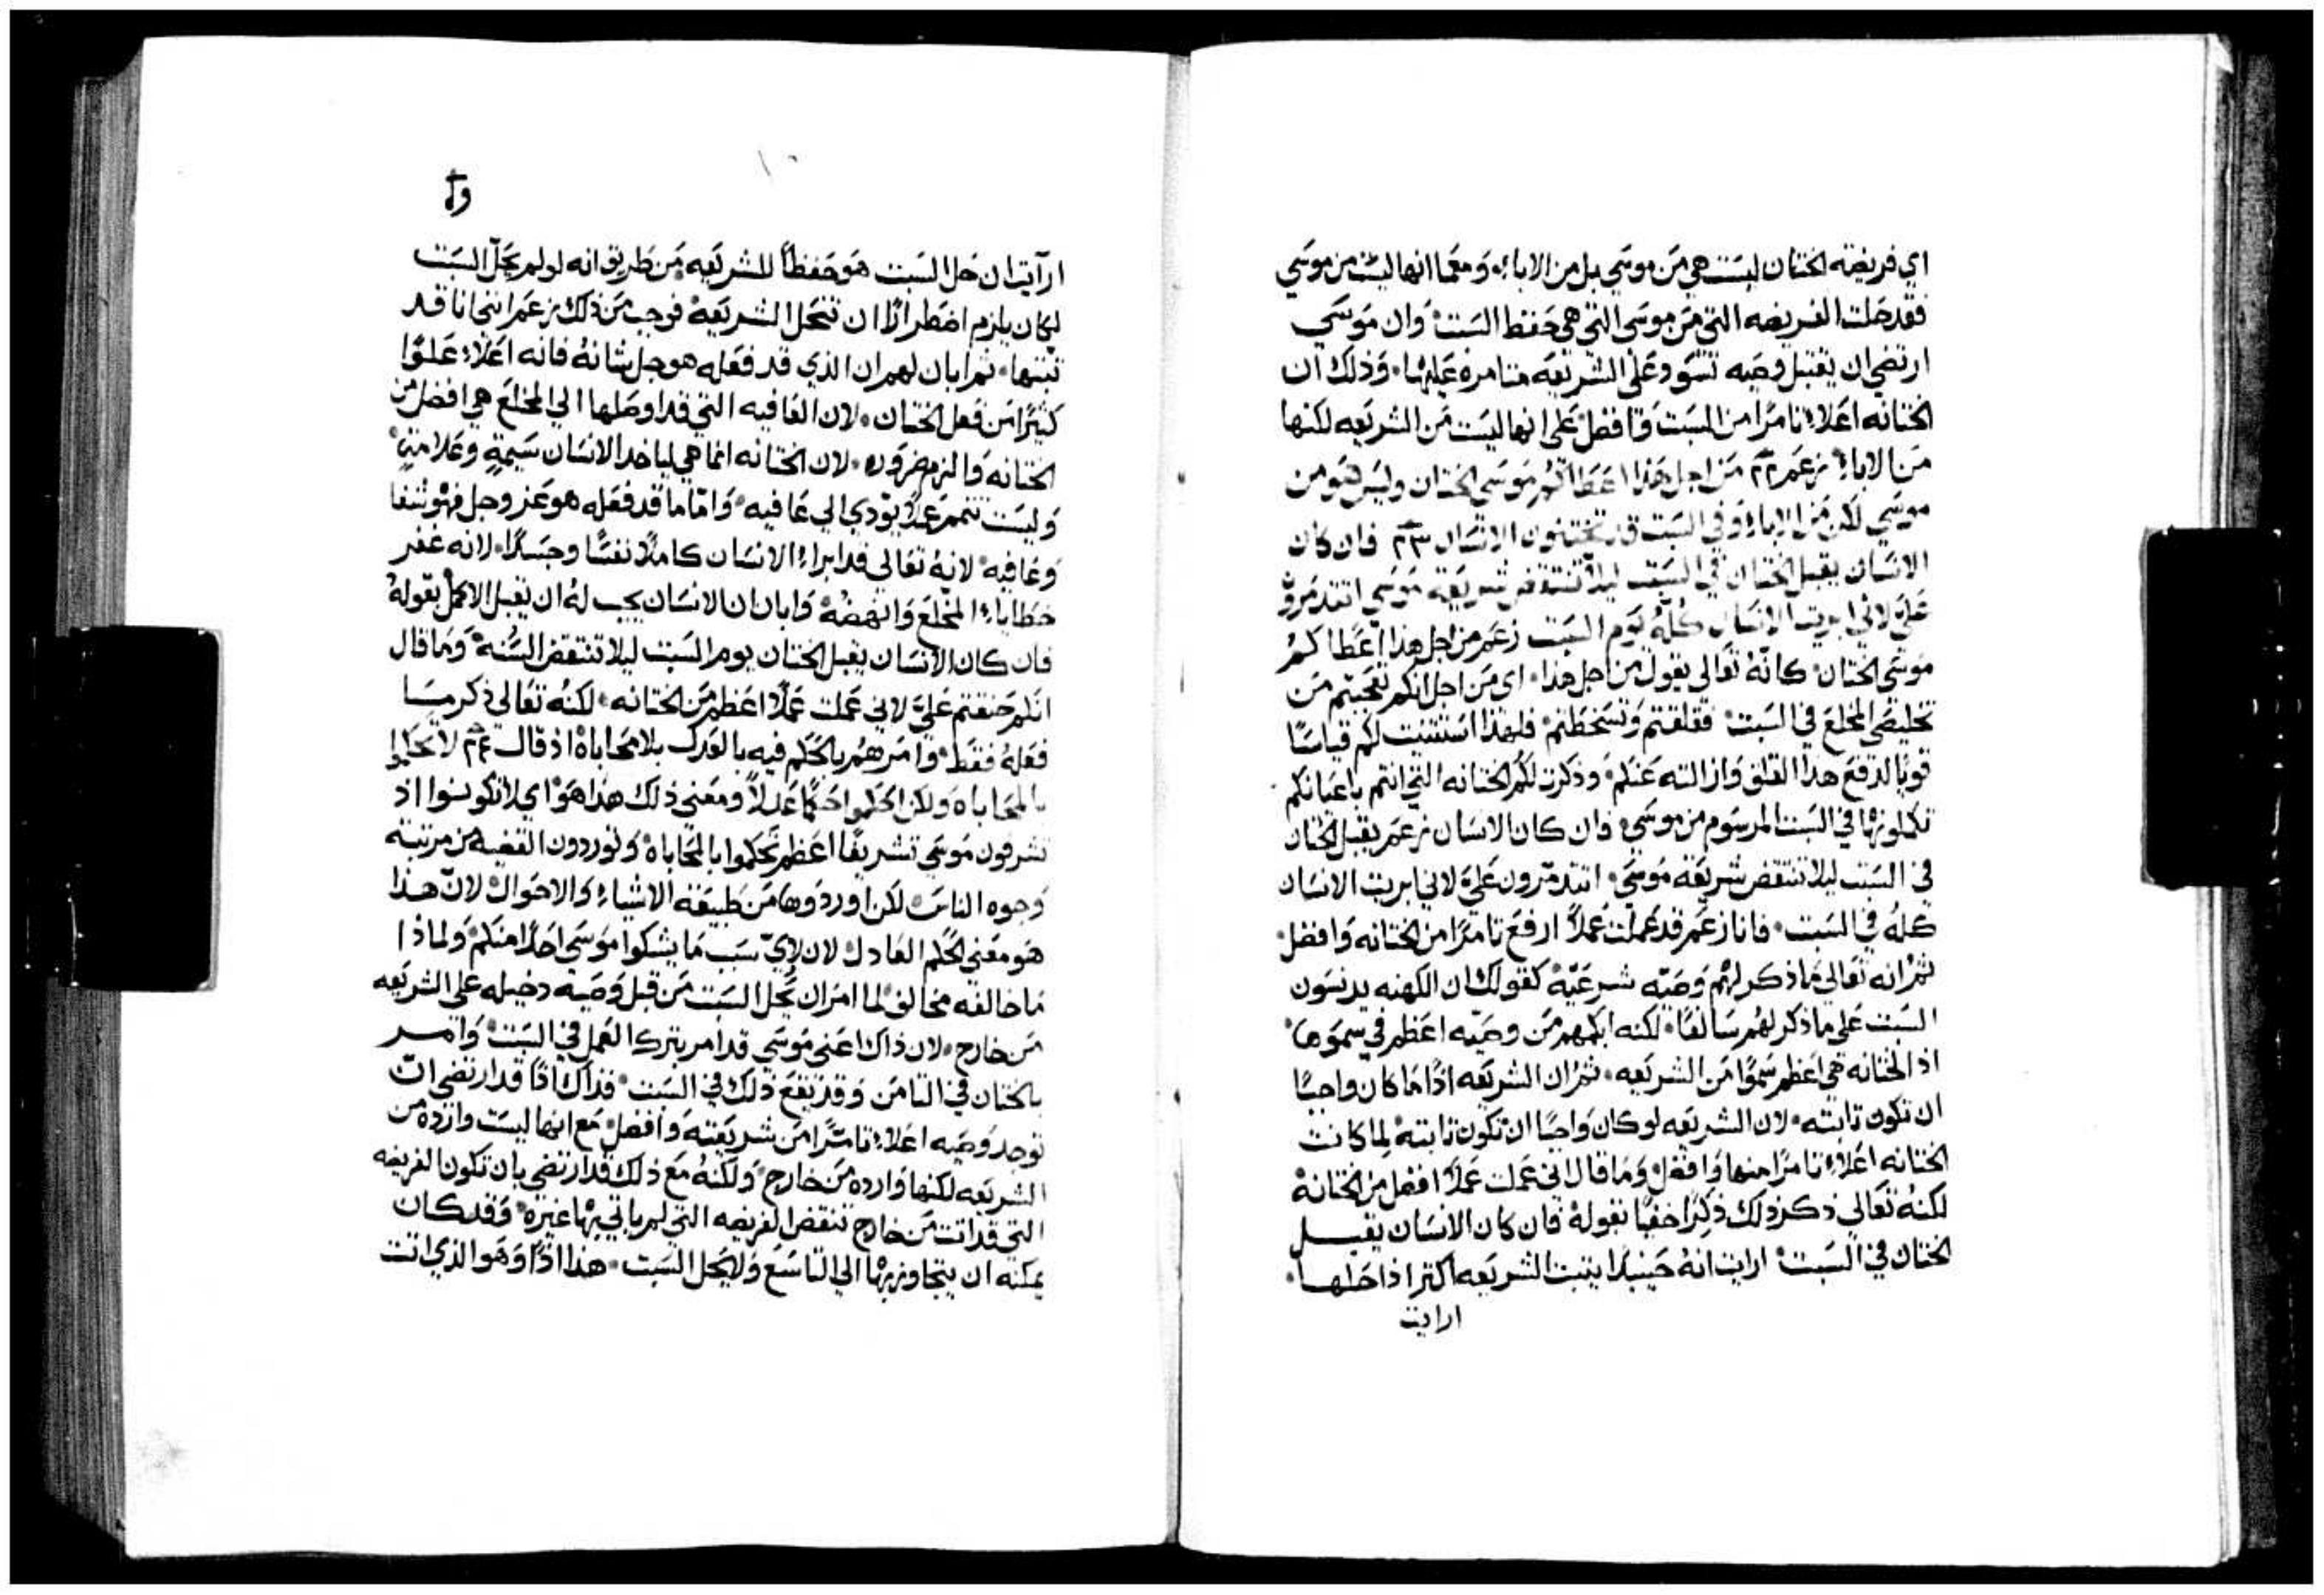 اي فريضة الختان ليست هي من موسي بل من الاباء، ومعما انها ليست من موسي
فقد حلت الفريضه التي من موسي التي هي حفظ السبت، وان موسي
ارتضي ان يقتبل وصيه تسود علي الشريعه متامره عليها، وذلك ان
الختانه اعلاء تامرًا من السبت وافضل علي انها ليست من الشريعه لكنها
من الاباء، زعم ٢٢ من اجل هذا اعطاكم موسي الختان وليس هو من
موسي لكن من الاباء وفي السبت قد تختنون الانسان ٢٣ فان كان
الانسان يقبل الختان في السبت ليلا تنتقض شريعة موسي اتتدمرون
علي لاني ابريت الانسان كله يوم السبت زعم من اجل هذا اعطاكم
موسي الختان، كانه تعالي يقول من اجل هذا، اي من اجل انكم تعجبتم من
تخليصي المخلع في السبت، فقلقتم وتسخطتم، فلهذا استثنيت لكم قياسًا
قويا لدفع هذا القلق وازالته عنكم، وذكرت لكم الختانه التي انتم باعيانكم
تكملونها في السبت المرسوم من موسي، فان كان الانسان زعم يقبل الختان
في السبت ليلا تنتقض شريعة موسي، اتتدمرون علي لاني ابريت الانسان
كله في السبت، فانا زعم قد عملت عملاً ارفع تامرًا من الختانه وافضل،
ثم انه تعالي ما ذكر لهم وصيه شرعية، كقولك ان الكهنه يدنسون
السبت علي ما ذكر لهم سالفا، لكنه ابكمهم من وصيه اعظم في سموها،
اذ الختانه هي اعظم سموًا من الشريعه، ثم ان الشريعه اذًا ما كان واجبًا
ان تكون ثابته، لان الشريعه لو كان واجبًا ان تكون ثابتة لما كانت
الختانه اعلاء تامرًا منها وافضل، وما قال اني عملت عملاً افضل من الختانة
لكنه تعالي ذكر ذلك ذكرًا خفيا بقوله، فان كان الانسان يقبل
الختان في السبت، ارايت انه حينيذ يثبت الشريعه اكثر اذا حلها،
ارايت
ارآيت ان حل السبت هو حفظاً للشريعه، من طريق انه لو لم يحل السبت
لكان يلزم اضطرارًا ان تنحل الشريعه، فوجب من ذلك زعم انني انا قد
ثبتها، ثم ابان لهم ان الذي قد فعله هو جل شانه فانه اعلاء علوًا
كثيرًا من فعل الختان، لان العافيه التي قد اوصلها الي المخلع هي افضل من
الختانه والزم ضروره، لان الختانه انما هي لياخذ الانسان سيمةٍ وعلامةٍ،
وليست تتمم عملاً يودي الي عافيه، واما ما قد فعله هو عز وجل فهو شفا
وعافيه، لانه تعالي قد ابراء الانسان كاملاً نفسًا وجسدًا، لانه غفر
خطاياء المخلع وانهضه، وابان ان الانسان يجب له ان يقبل الاكمل بقوله
فان كان الانسان يقبل الختان يوم السبت ليلا تنتقض السنة، وما قال
انكم حنقتم علي لاني عملت عملاً اعظم من الختانه، لكنه تعالي ذكر ما
فعله فقط، وامرهم بالحكم فيه بالعدل بلا محاباة، اذ قال ٢٤ لا تحكموا
بالمحاباه ولكن احكموا حكمًا عدلاً ومعني ذلك هذا هو، اي لا تكونوا اذ
تشرفون موسي تشريفًا اعظم تحكموا بالمحاباة، وتوردون القضيه من مرتبة
وجوه الناس، لكن اوردوها من طبيعة الاشياء والاحوال، لان هذا
هو معني الحكم العادل، لان لاي سبب ما يشكوا موسي احدًا منكم، ولماذا
ما خالفه مخالف لما امر ان يحل السبت من قبل وصيه دخيله علي الشريعه
من خارج، لان ذاك اعني موسي قد امر بترك العمل في السبت، وامر
بالختان في الثامن وقد يقع ذلك في السبت، فذاك اذًا قد ارتضي ان
توجد وصيه اعلاء تامرًا من شريعته وافضل، مع انها ليست وارده من
الشريعه لكنها وارده من خارج، ولكنه مع ذلك قد ارتضي بان تكون الفريضه
التي قد اتت من خارج تنقض الفريضه التي لم ياتي بها غيره، وقد كان
يمكنه ان يتجاوز بها الي التاسع ولا يحل السبت، هذا اذًا وهو الذي اتت